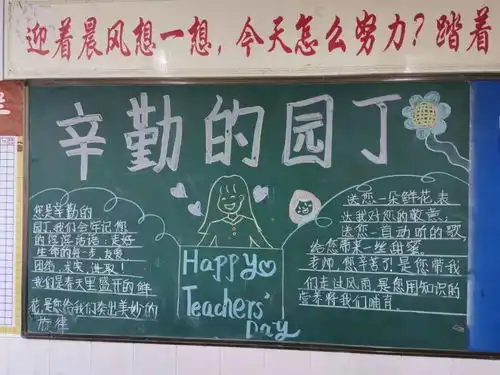 迎着晨风想一想，今天怎么努力？踏着
辛勤的园丁
您是辛勤的
园丁,我们会牢记您
的谆谆话语:走好
生命的每一步,友爱、
团结、求实、进取！
我们是春天里盛开的鲜
花,是您给我们奏出美妙的
旋律
Happy
Teachers'
Day
送您一朵鲜花,表
达我对您的敬意,
送您一首动听的歌,
给您带来一丝甜蜜。
老师,您辛苦了!是您带我
们走过风雨,是您用知识的
营养将我们哺育。